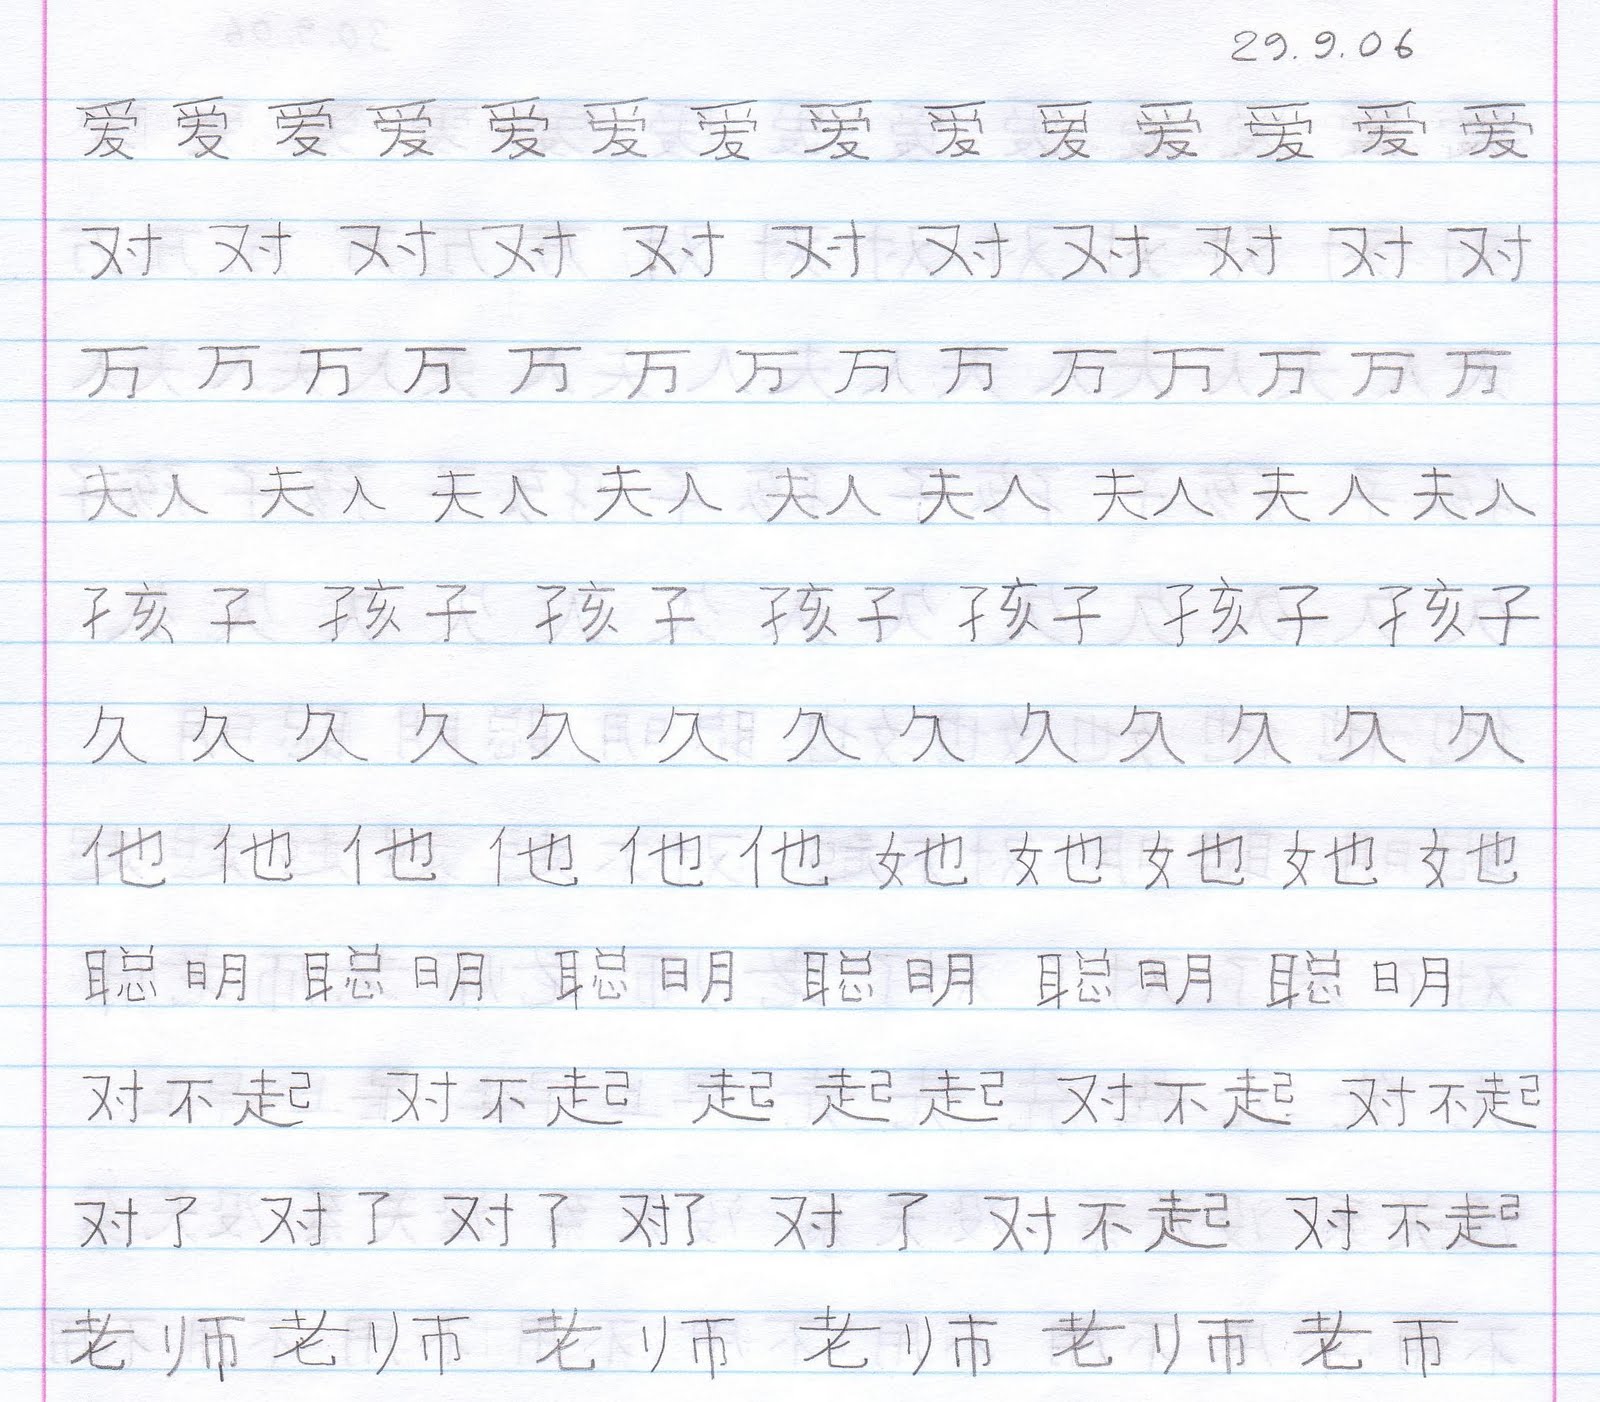 29.9.06
爱 爱 爱 爱 爱 爱 爱 爱 爱 爱 爱 爱 爱 爱
对 对 对 对 对 对 对 对 对 对 对
万 万 万 万 万 万 万 万 万 万 万 万 万 万
夫人 夫人 夫人 夫人 夫人 夫人 夫人 夫人 夫人
孩子 孩子 孩子 孩子 孩子 孩子 孩子
久 久 久 久 久 久 久 久 久 久 久 久 久
他 他 他 他 他 他 她 她 她 她 她
聪明 聪明 聪明 聪明 聪明 聪明
对不起 对不起 起 起 起 对不起 对不起
对了 对了 对了 对了 对了 对不起 对不起
老师 老师 老师 老师 老师 老帀